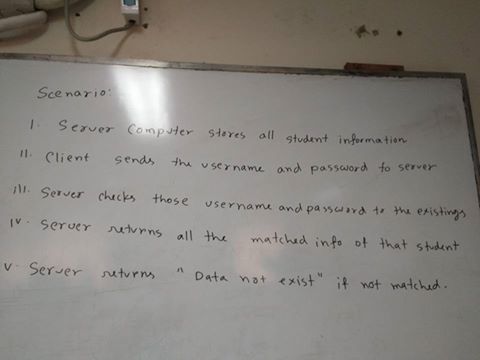 Scenario:
I. Server Computer stores all student information
II. Client sends the username and password to server
III. Server checks those username and password to the existings
IV. Server returns all the matched info of that student
V. Server returns "Data not exist" if not matched.